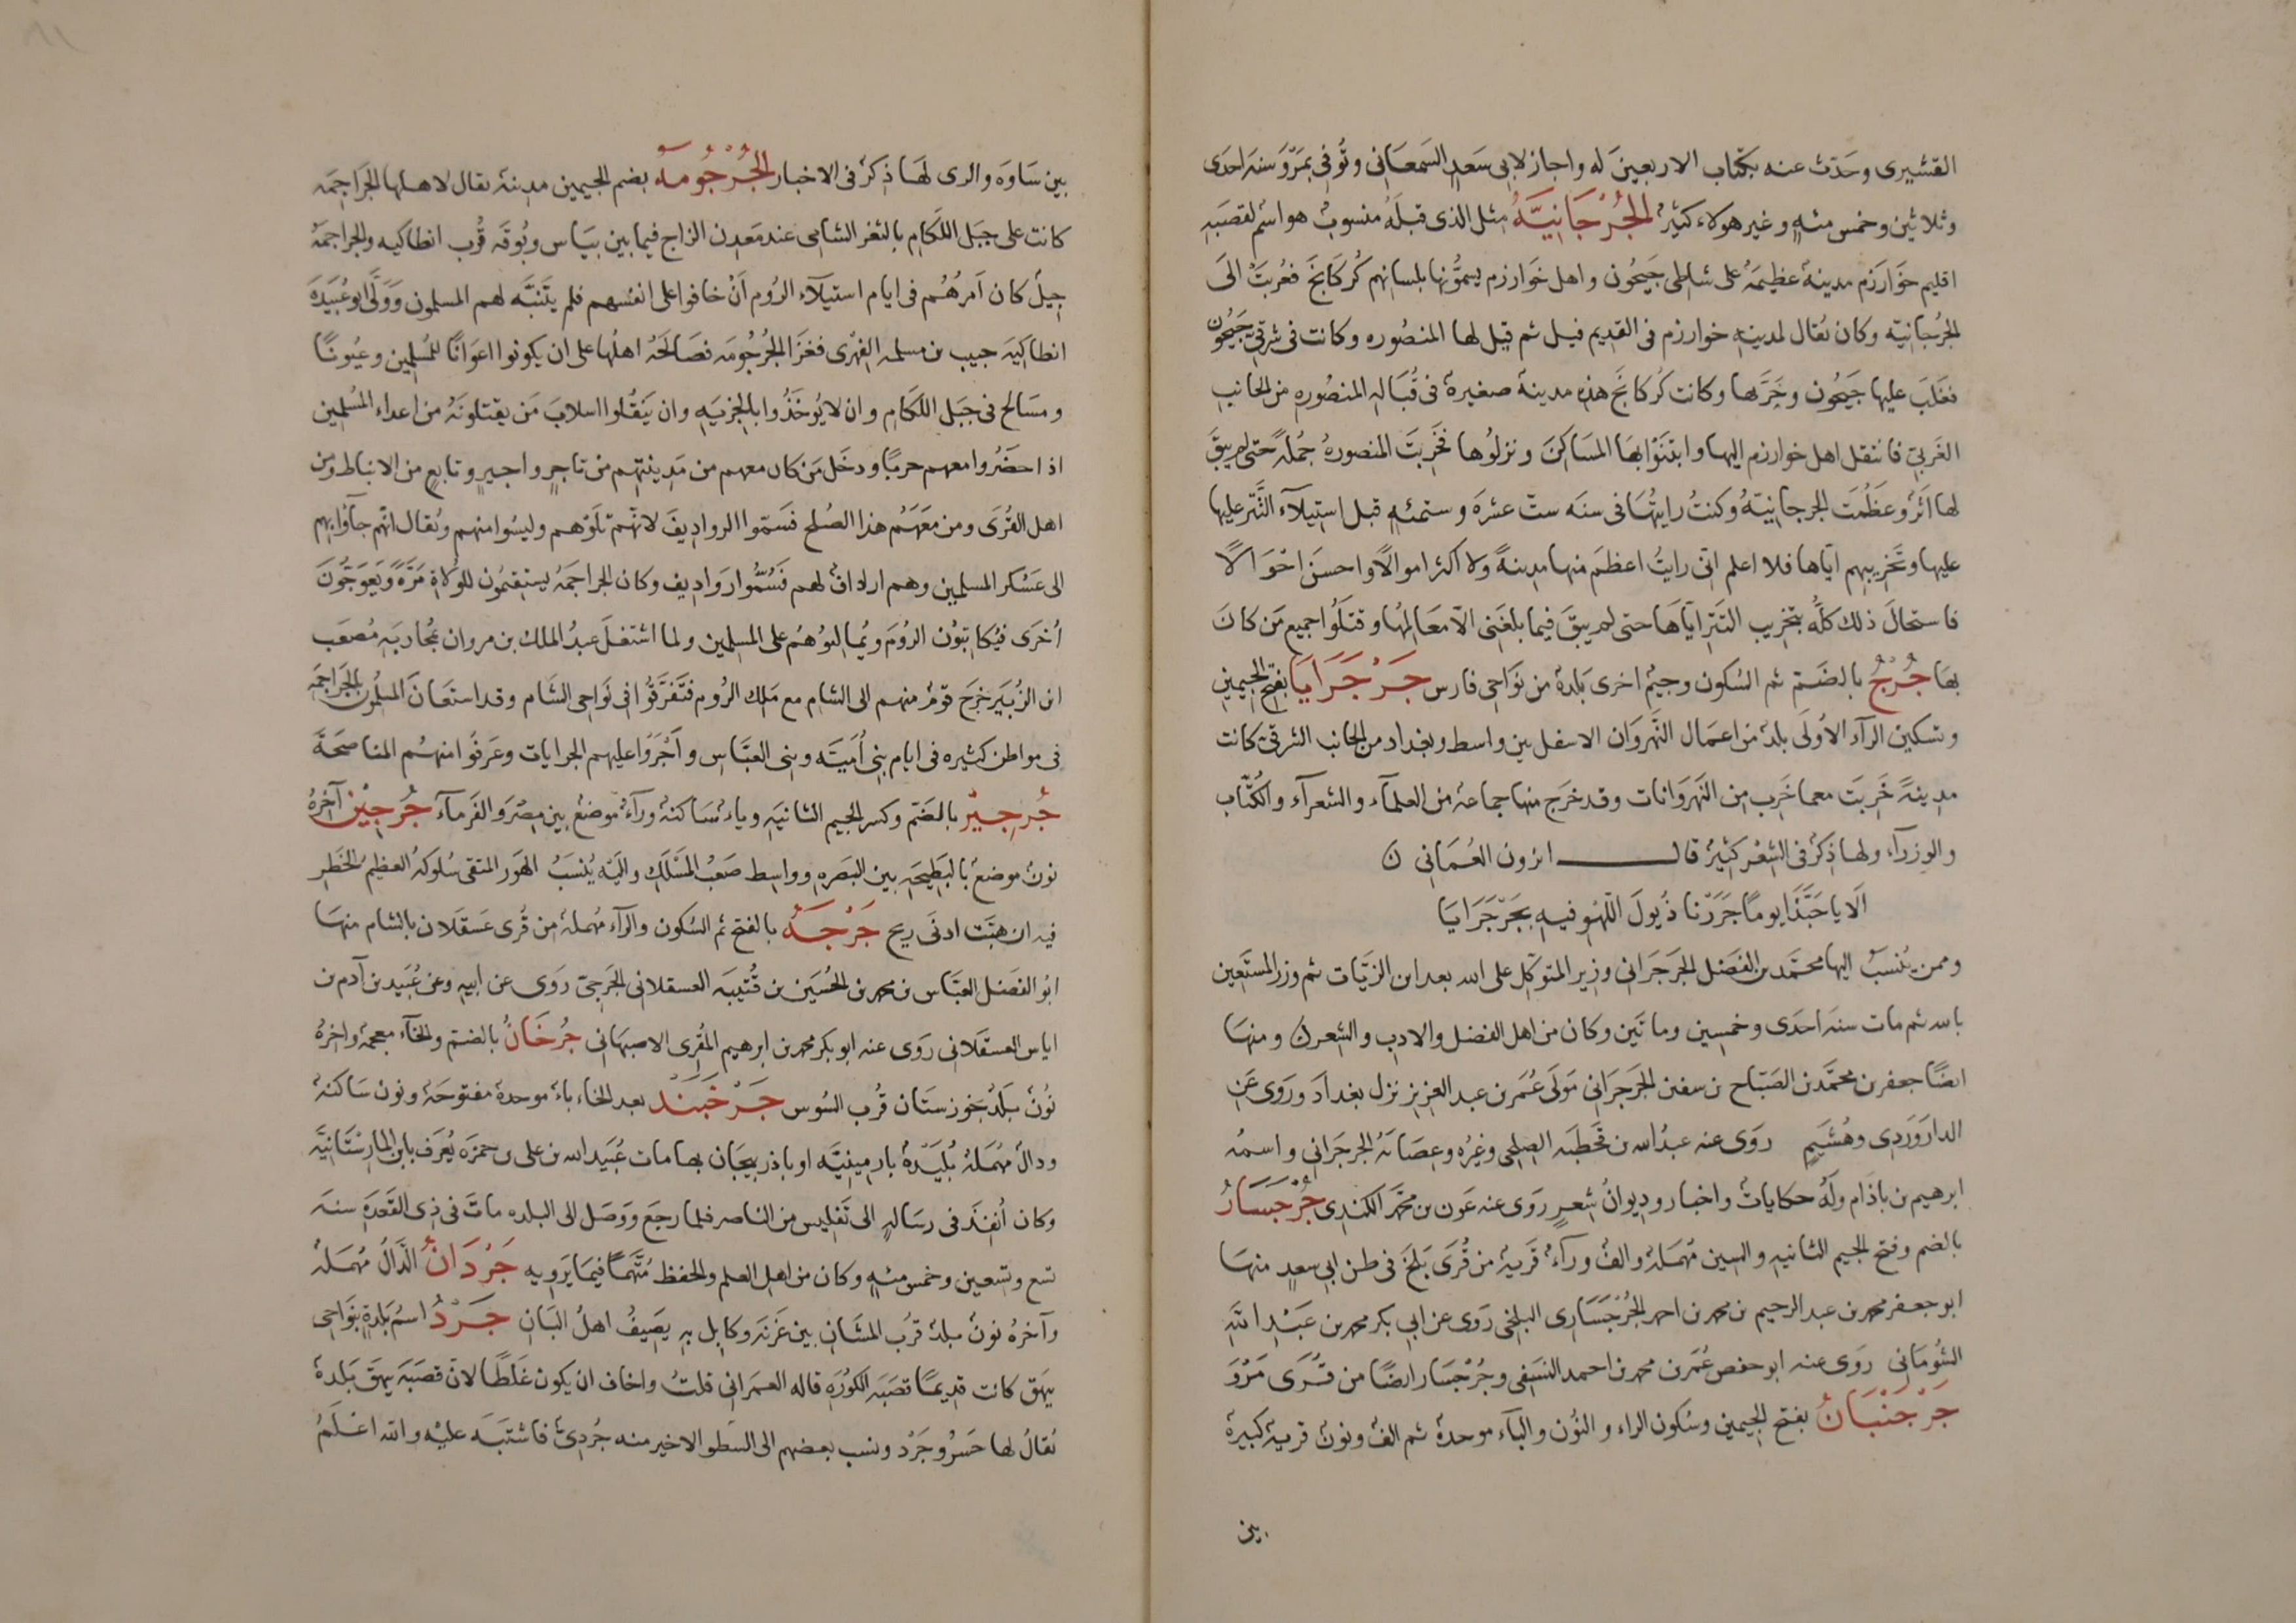 القشيرى وحَدّث عنه بكتاب الاربعين له واجاز لابى سَعدٍ السَمعانى وتُوفى بمَرْوَ سنه احدى
وثلاثين وخمس مئهٍ وغير هولاء كثيرٌ الجُرْجَانِيَّةُ مثل الذى قبلَهُ منسوبٌ هو اسمٌ لقصَبهِ
اقليم خوَارَزم مدينة عظيمَةُ على شاطى جَيحُون واهل خوَارزم يسمُّونها بلسانهم كُركَانجَ فعُربَتْ الى
الجُرجانيّه وكان يُقال لمدينهِ خوارزم فى القديم فيل ثم قيل لها المنصُوره وكانت فى شرقىّ جَيحُون
فغَلَبَ عليها جَيحُون وخَرَّبها وكانت كُركانجَ هذه مدينة صغيرةً فى قُبَالهِ المنصُوره من الجانب
الغَربىّ فانتقل اهل خوارزم اليها وابتَنَوْا بهَا المَسَاكِنَ ونزلُوها فخَرِبَتَ المنصورهُ جُملةً حتى لم يبقَ
لها اَثَرٌ وعَظُمَت الجرجانيّةُ وكنتُ رايتُهَا فى سنَه ستّ عشرَة وستمئهٍ قبل استيلآء التَّتَر عليها
وتَخريبِهِم اياها فلا اعلم انى رايتُ اعظمَ منها مدينةً ولا اكثر اموالًا واحسنَ احْوَالًا
فاستحالَ ذلك كلّهُ بتخريب التَتَر ايَاهَا حتى لم يبقَ فيما بلغَنى الّا مَعَالِمُها وقتَلَوُا جميع مَن كانَ
بهَا جُرْجُ بالضَمّ ثم السُكون وجيمٌ اخرى بَلدةٌ من نَوَاحى فارس جَرْجَرَايَا بفتح الجيمين
وتسكين الرآء الاُولَى بلدٌ من اعمَال النَّهرَوَان الاسفل بين واسط وبغداد من الجانب الشرقىّ كانت
مدينةً خَرِبَت مع ما خَرِب من النَهرَوَانات وقد خرَج منها جماعة من العلمآء والشعرآء والكُتّاب
والوزرآء ولها ذِكرٌ فى الشِعْر كثيرٌ قال ابزون العُمَانى ن
اَلَا يا حَبَّذَا يومًا جَرَرْنا ذُيولَ اللَّهْوِ فيهِ بجَرْجَرَايَا
وممن يُنسَبُ اليها محمَّد بن الفَضْل الجَرجَرَانى وزير المتوكّل على الله بعد ابن الزيّات ثم وزر المستَعين
بالله ثم مات سنه احدَى وخمسين وماتَين وكان من اهل الفضل والادب والشعر ن ومنها
ايضًا جعفر بن محمَّد بن الصَبَّاح بن سفين الجَرجَرَانى مَولَى عُمَر بن عبد العزيز نزل بغدادَ ورَوَى عَن
الدارَوَردِى وهُشَيم روَى عنه عبدُ الله بن قَحطبَه الصلحى وغيرُه وعصَابَةُ الجرجرَانى واسمُه
ابرهيم بن باذَام ولَهُ حكاياتٌ واخبار وديوانُ شعرٍ روَى عنه عَون بن محمّد الكندِى جُرْجَسَارُ
بالضم وفتح الجيم الثانيه والسين مُهمَلهٌ والفٌ ورآءٌ قريةٌ من قُرَى بَلخَ فى ظن ابى سعدٍ منها
ابو جعفر محمد بن عبد الرحيم بن محمد بن احمد الجُرْجَسَارى البلخى رَوَى عن ابى بكر محمد بن عَبْد الله
الشُومَانى روَى عنه ابو حفص عُمَر بن محمد بن احمد النسَفى وجُرْجَسَار ايضًا من قُرَى مَرْوَ
جَرْجَنْبَانُ بفتح الجيمين وسُكون الراء والنُون والبآء موحدهٌ ثم الفٌ ونونٌ قريةٌ كبيرةٌ
بين
بين سَاوَه والرى لهَا ذِكرٌ فى الاخبار الجُرْجُومَهُ بضم الجيمين مدينة يقال لاهلها الجَرَاجمَه
كانت على جَبَل اللّكَام بالثغر الشامى عند مَعدِن الزاج فيما بين بيَاس وبُوقَه قُرب انطاكيه والجراجمَهُ
جيلٌ كان اَمرُهُم فى ايام استيلآء الرُوم اَنْ خافوا على انفسهم فلم يتَنبَّه لهم المسلمون وَوَلَّى ابو عُبَيدَةَ
انطاكيَه حبيب بن مسلمه الفِهْرى فغَزَا الجُرجُومَه فصَالحَهُ اهلُها على ان يكونوا اعوَانًا للمُسلِمين وعيُونًا
ومسَالح فى جَبَل اللكَام وان لا يُوخَذُوا بالجزيَهِ وان يَنَفَّلُوا اسلابَ مَن يقتلونَهُ من اعداء المُسلمين
اذا حضَرُوا معهم حربًا ودخَل مَن كان معهم من مَدينتِهِم من تاجرٍ واجيرٍ وتابعٍ من الانباط ومن
اهل القُرَى ومن معَهُم هذا الصُلح فسَمّوا الروادِيفَ لانّهُم تلَوْهم وليسُوا منهم ويُقال انّهم جآوٌا بهم
الى عَسْكر المسلمين وهم اردافٌ لهم فَسُمُّوا رَوَادِيف وكان الجراجمَهُ يستقيمُون للوُلَاة مَرَّةً ويَعوَجُّونَ
اُخرَى فيُكاتبُون الرُومَ ويُمالئوُهُم على المسلمين ولما اشتغَل عبدُ الملك بن مروان بمُحاربَهِ مُصعَب
ابن الزُبَير خرَجَ قومٌ منهم الى الشام مع مَلك الرُوم فتَفَرَّقُوا فى نَواحى الشَام وقد استعَانَ المسلمُون بالجَرَاجمَهِ
فى مواطن كثيره فى ايام بنى اُمَيَّه وبنى العبَّاس واَجْرَوْا عليهم الجرايات وعَرَفُوا منهُم المناصحَةَ
جُرجِيْرُ بالضَم وكسر الجيم الثانيه وياءٌ سَاكنةٌ ورآءٌ موضعٌ بين مِصْرَ والفَرمآء جُرجيْن آخرهُ
نونٌ موضعٌ بالبَطيحَه بين البَصرَه وواسِط صَعْبُ المَسْلَكِ واليَه يُنسَبُ الهَور المتقى سُلوكهُ العظيمُ الخَطَر
فيه ان هبَّت ادنَى ريح جَرْجَهُ بالفتح ثم السُكون والرآء مُهملهٌ من قُرى عَسقَلان بالشام منهَا
ابُو الفضل العبَّاس بن محمد بن الحُسَين بن قُتَيبَه العسقلانى الجَرجىّ روَى عن ابيهِ وعن عُبَيد بن آدم بن
اياس العسقَلانى روَى عنه ابو بكر محمد بن ابرهيم المُقرِى الاصبهانى جُرخَانُ بالضمّ والخآء معجمهٌ واخرهُ
نُونٌ بَلَدٌ بخوزستَان قُرب السُوس جَرْخَبَنْد بعد الخاء باءٌ موحدةٌ مفتوحَهٌ ونون سَاكنةٌ
ودالٌ مُهمَلهٌ بُلَيْدَهٌ بارمينيَّه او باذربيجَان بها مات عُبَيد الله بن على بن حمزَه يُعرَف بابن المارستَانيَّه
وكان اُنفِذَ فى رسَالهٍ الى تَفليس من الناصر فلما رجَع ووَصَل الى البلده ماتَ فى ذِى القَعدَه سنَه
تسع وتسعين وخمس مئهٍ وكان من اهل العلم والحفظ مُتَّهمًا فيمَا يَرويهِ جَرْدَانُ الدَّالُ مُهمَلهٌ
وآخرهُ نونٌ بلدٌ قُربُ المشَان بين غَزنَه وكابل بهِ يصَيفُ اهلُ البَان جَرْدُ اسمُ بَلدةٍ بنَواحى
بيهَق كانت قديمًا قصَبَه الكُورَهِ قاله العمرَانى قلتُ واخاف ان يكون غَلَطًا لانّ قصَبَه بيهَق بَلدةٌ
يُقالُ لها خسْرُوجَرْد ونسب بعضهم الى الشطر الاخير منه جُردىٌّ فاشتَبَه عليْهِ والله اعْلَمُ